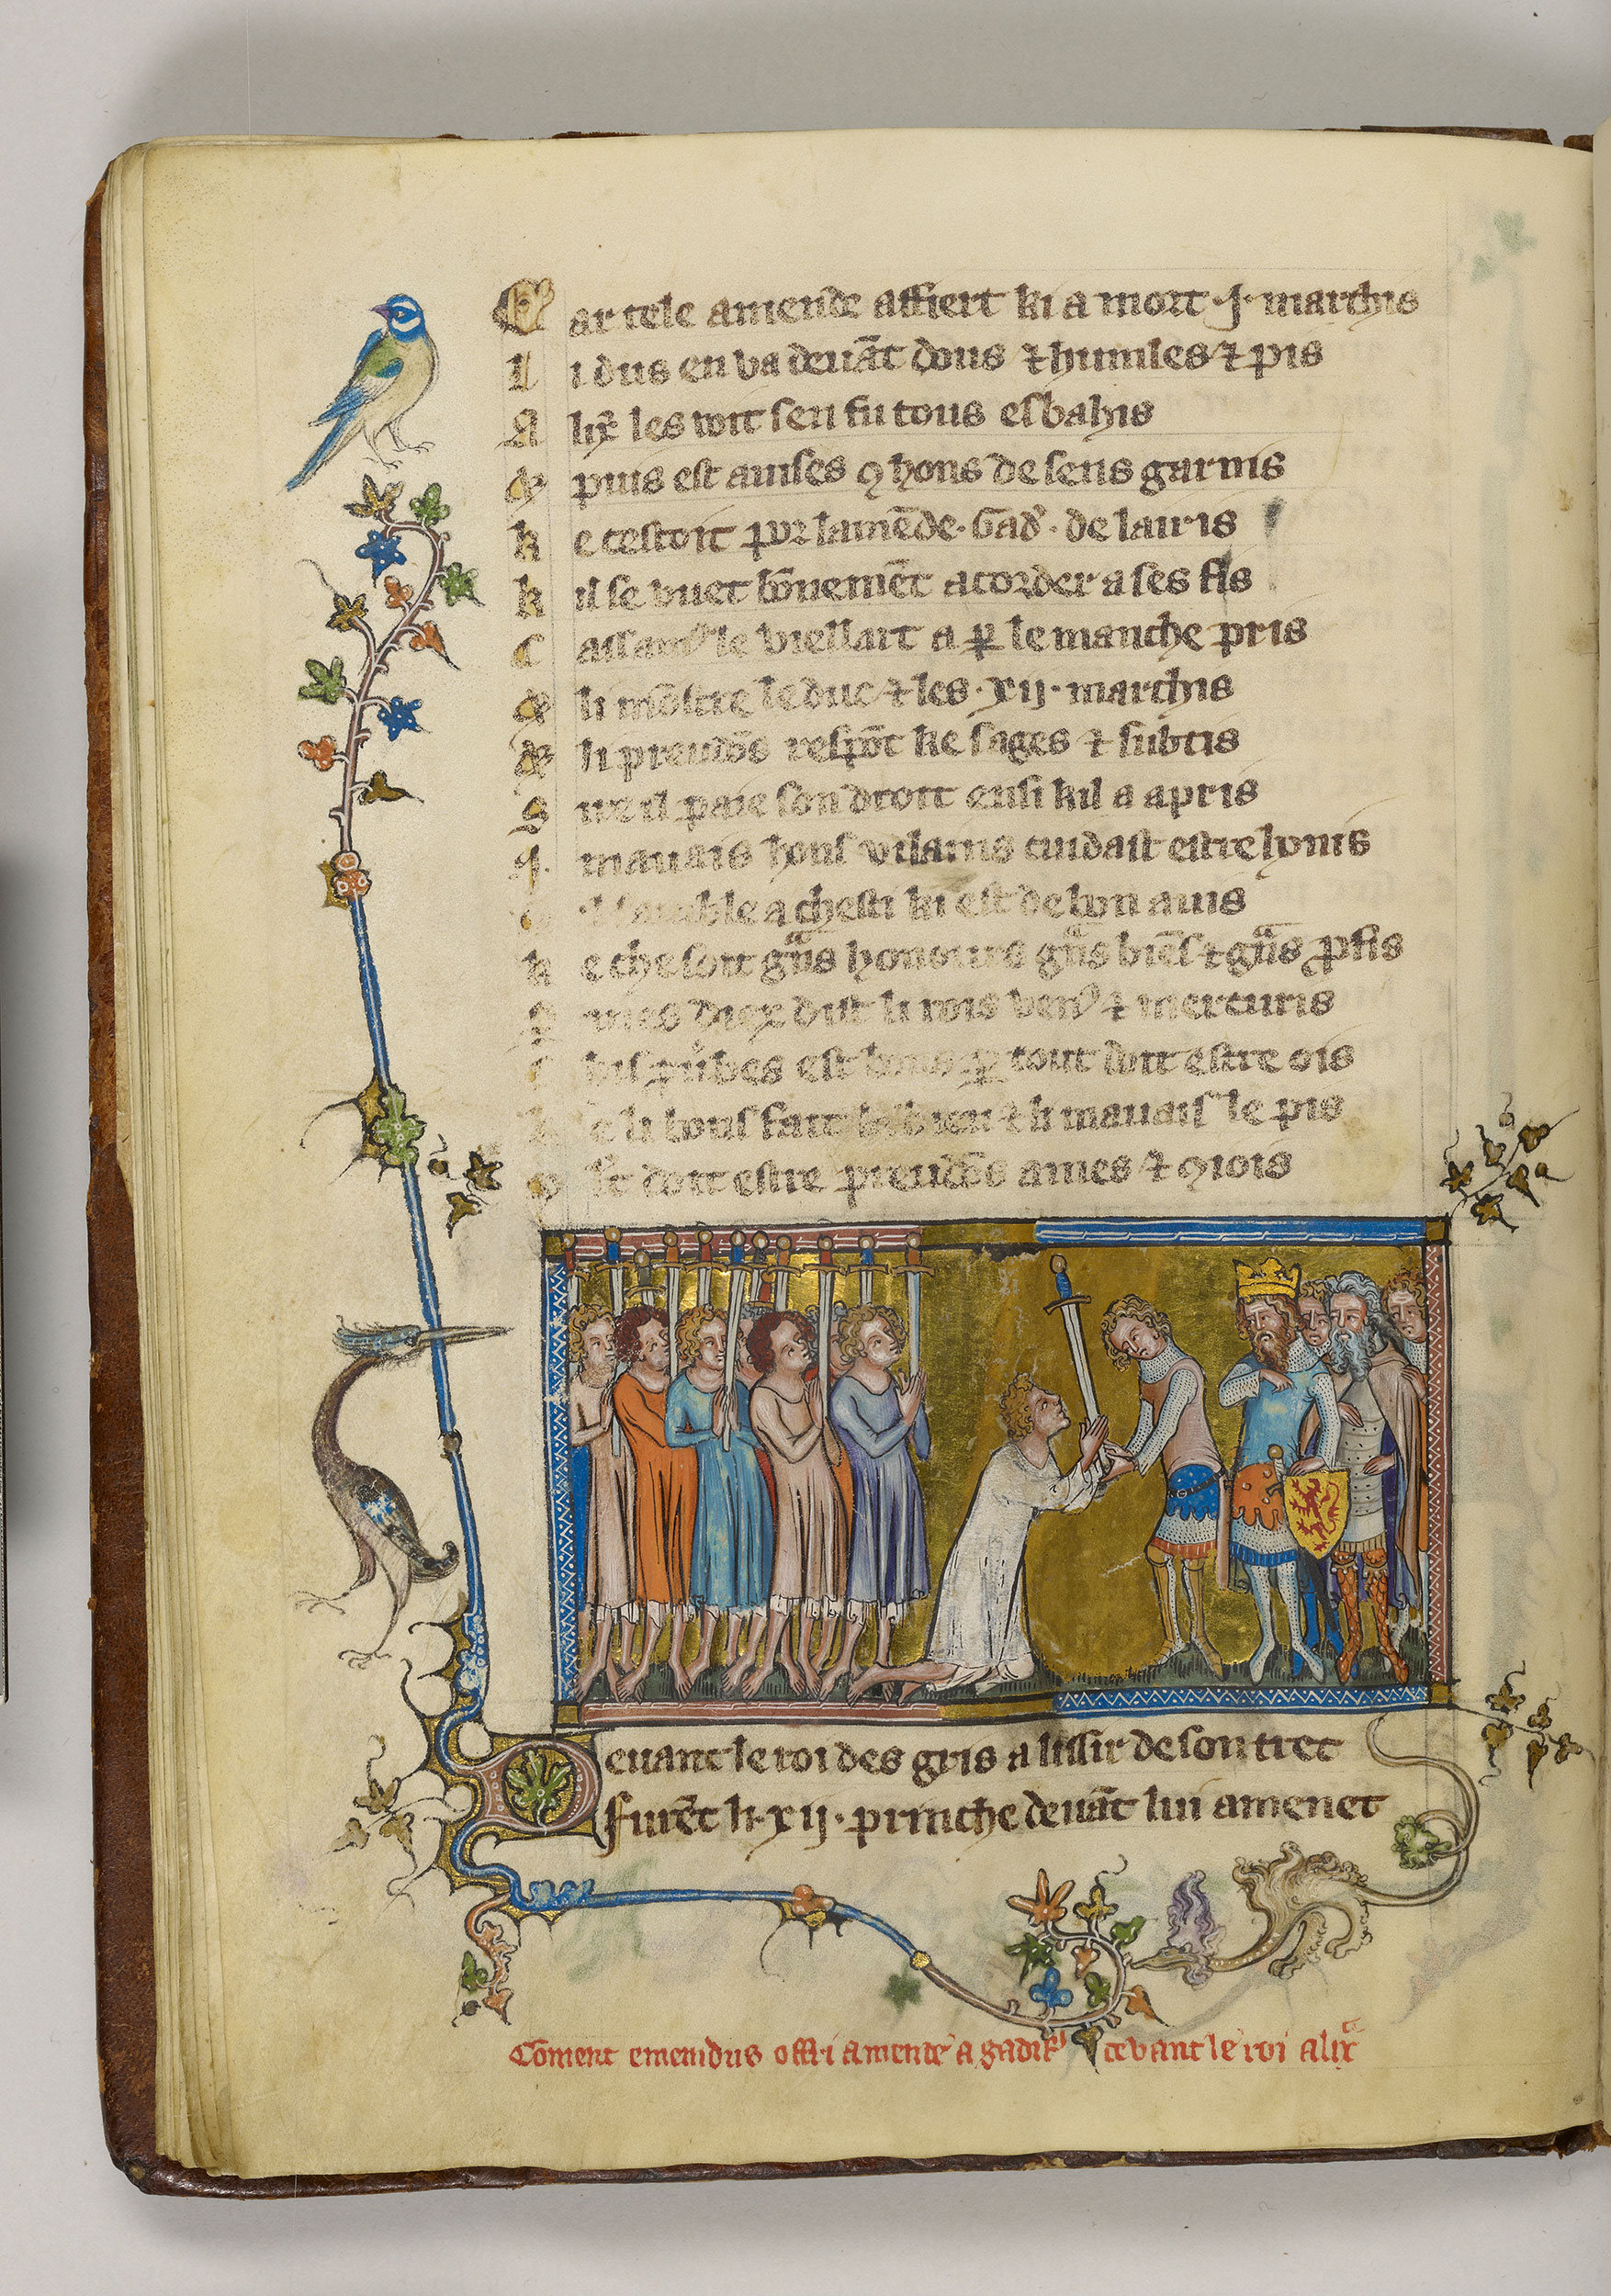 Car tele amende affiert ki a mort .j. marchis
li dus en va deuāt dous ⁊ humles ⁊ pis
Alix̄ les voit sen fu tous esbahis
Et puis est auises ꝯ hons de sens garnis
ke cestoit por̄ lamēde . Gad᾽. de lauris
kil se vuet bōnemēt acorder a ses fis
Cassam᾽ le viellart a ꝑ le manche pris
Et li mōstre le duc ⁊ les .xij. marchis
Et li preudōs respōt ke sages ⁊ subtis
Sire il paie son droit ensi kil a apris
.j. mauais hons vilains cuidast estre honis
ki est de bon auis
ke che soit gn̄s honours gn̄s biēs ⁊ gn̄s ꝓfis
dist li rois ven᾽ ⁊ mercuris
est bons tout doit estre ois
ke li bons fait le bien ⁊ li mauais le pis
doit estre preudōs ames ⁊ ꝯiois
Deuant le roi des gris a lissir de son tret
furēt li .xij. prinche deuāt lui amenet
Cōment emenidus offri amende a gadif᾽ deuant le roi alix̄